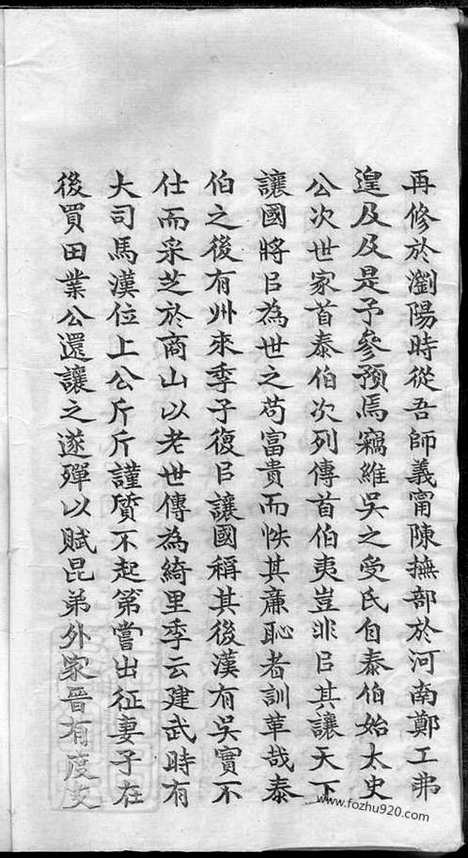 再修於瀏陽時從吾師義甯陳撫部於河南鄭工弗
遑及及是予參預焉竊維吳之受氏自泰伯始太史
公次世家首泰伯次列傳首伯夷豈非㠯其讓天下
讓國將㠯為世之苟富貴而怢其廉恥者訓革哉泰
伯之後有州來季子復㠯讓國稱其後漢有吳實不
仕而采芝於商山以老世傳為綺里季云建武時有
大司馬漢位上公斤斤謹質不起第嘗出征妻子在
後買田業公還讓之遂殫以賦昆弟外家晉有度支
www.fozhu920.com